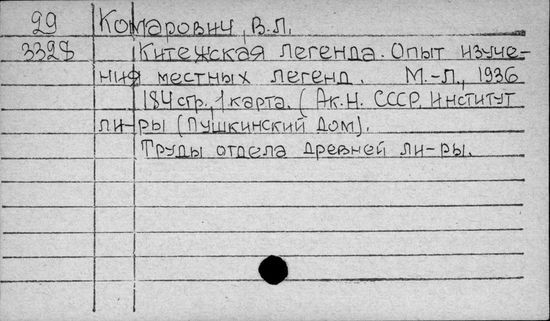 29 Комарович, В.Л.
3328 Китежская легенда. Опыт изуче-
ния местных легенд. М.-Л., 1936
184 стр., 1 карта. (Ак.Н. СССР. Институт
ли-ры (Пушкинский Дом).
Труды отдела древней ли-ры.